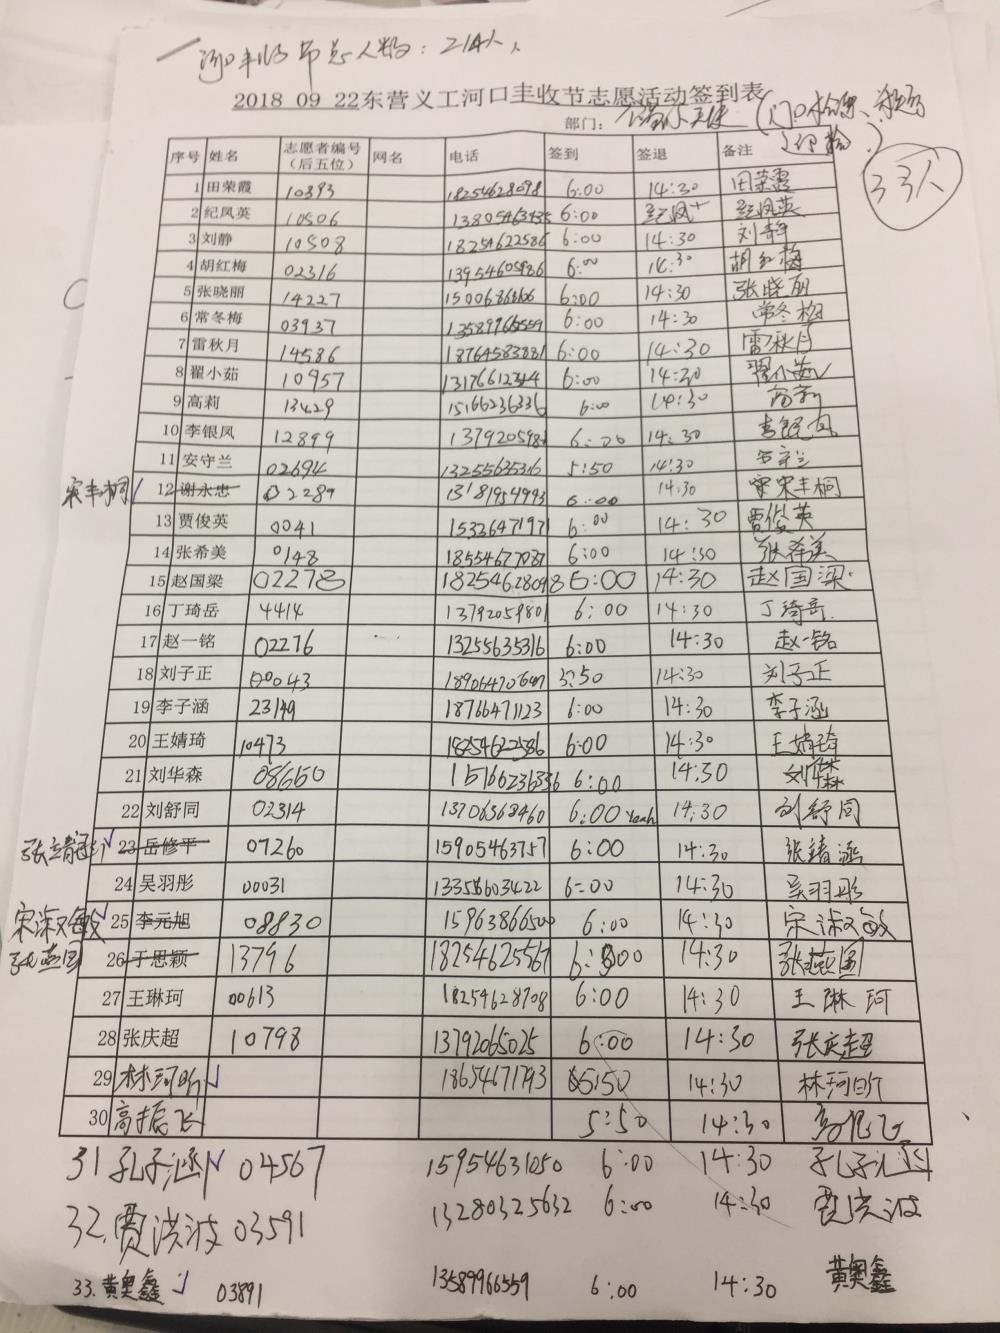 河口丰收节总人数：214人
2018 09 22东营义工河口丰收节志愿活动签到表
部门：
33人
序号 姓名 志愿者编号（后五位） 网名 电话 签到 签退 备注
1 田荣霞 10393 18254628098 6:00 14:30 田荣霞
2 纪凤英 10506 13805463435 6:00 纪凤英
3 刘静 10508 18254622586 6:00 14:30 刘静
4 胡红梅 02316 13954605986 6:00 14:30 胡红梅
5 张晓丽 14227 6:00 14:30 张晓丽
6 常冬梅 03937 6:00 14:30 常冬梅
7 雷秋月 14586 18764583881 6:00 14:30 雷秋月
8 翟小茹 10957 6:00 14:30 翟小茹
9 高莉 13429 15166236336 6:00 14:30 高莉
10 李银凤 12899 6:00 14:30 李银凤
11 安守兰 02694 13255635316 5:50 14:30 安守兰
宋丰桐 12 谢永忠 02289 13181954993 6:00 14:30 宋丰桐
13 贾俊英 0041 15326471971 6:00 14:30 贾俊英
14 张希美 0148 18554677087 6:00 14:30 张希美
15 赵国梁 02278 18254628098 6:00 14:30 赵国梁
16 丁琦岳 4414 13792059801 6:00 14:30 丁琦岳
17 赵一铭 02276 13255635316 6:00 14:30 赵一铭
18 刘子正 00043 5:50 14:30 刘子正
19 李子涵 23149 18766471123 6:00 14:30 李子涵
20 王婧琦 10473 18254622586 6:00 14:30 王婧琦
21 刘华森 08660 15166236336 6:00 14:30 刘华森
22 刘舒同 02314 13706368460 6:00 Yeah 14:30 刘舒同
张靖涵 23 岳修平 07260 15905463757 6:00 14:30 张靖涵
24 吴羽彤 00031 13356603422 6:00 14:30 吴羽彤
宋淑敏 25 李元旭 08830 15963866500 6:00 14:30 宋淑敏
张燕图 26 于思颖 13796 18254625567 6:00 14:30 张燕图
27 王琳珂 00613 18254628708 6:00 14:30 王琳珂
28 张庆超 10798 13792065025 6:00 14:30 张庆超
29 林珂昕 18654671793 5:50 14:30 林珂昕
30 高振飞 5:50 14:30 高振飞
31 孔子涵 04567 15954631050 6:00 14:30 孔子涵
32. 贾洪波 03591 13280325632 6:00 14:30 贾洪波
33. 黄奥鑫 03891 13589966559 6:00 14:30 黄奥鑫